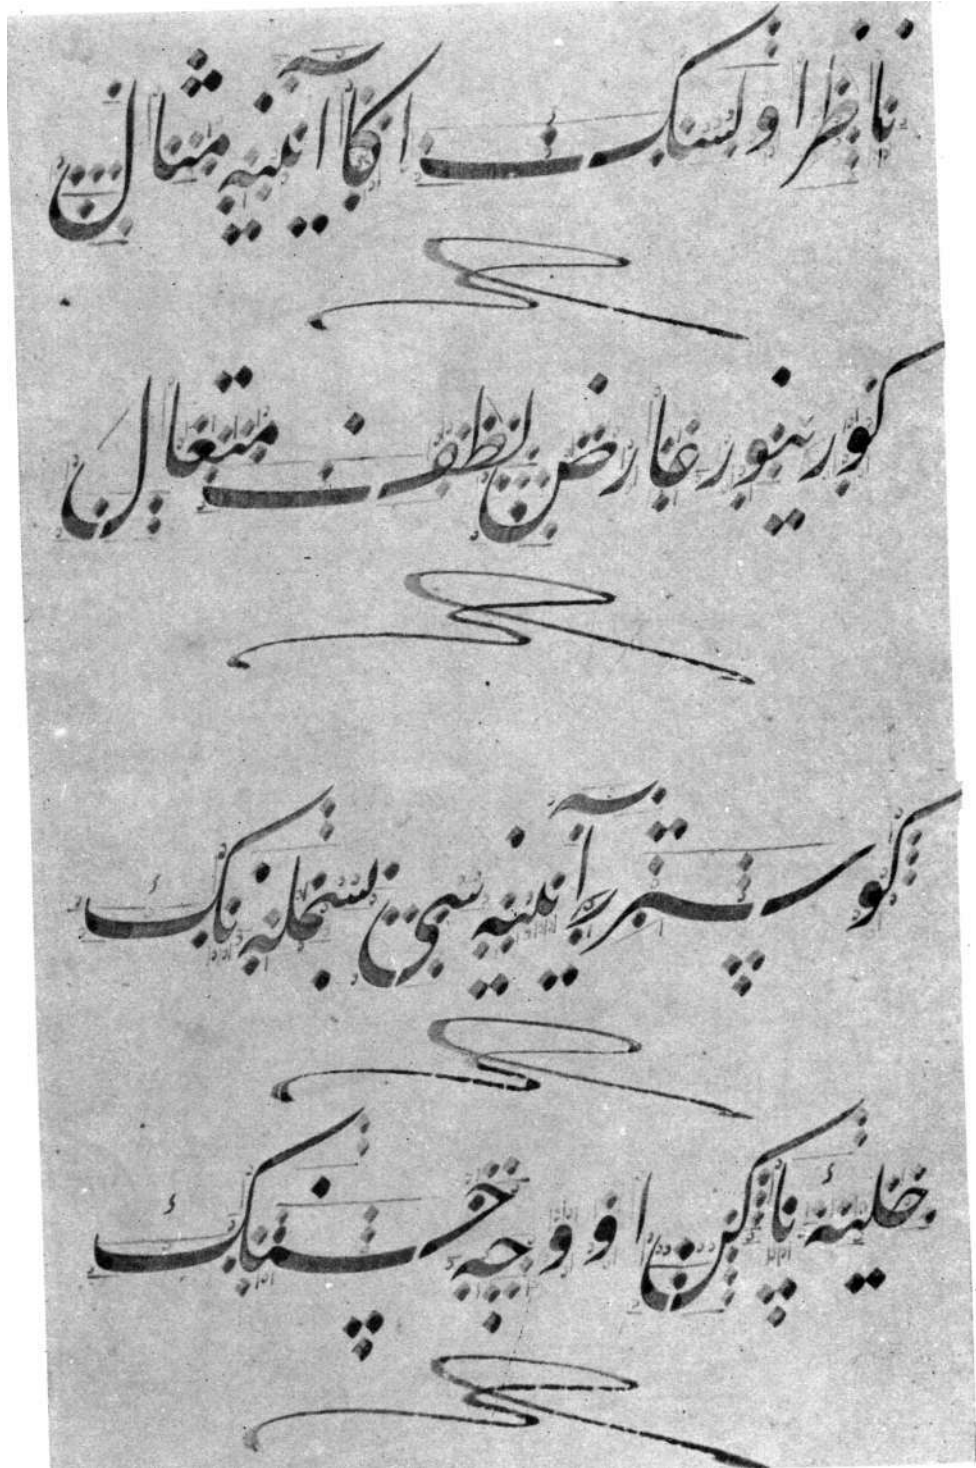 ناظر اولسك اكا آيينه مثال
كورينور عارض لطف متعال
كوستر آيينه
حليۀ پاكن او وجه حسنك